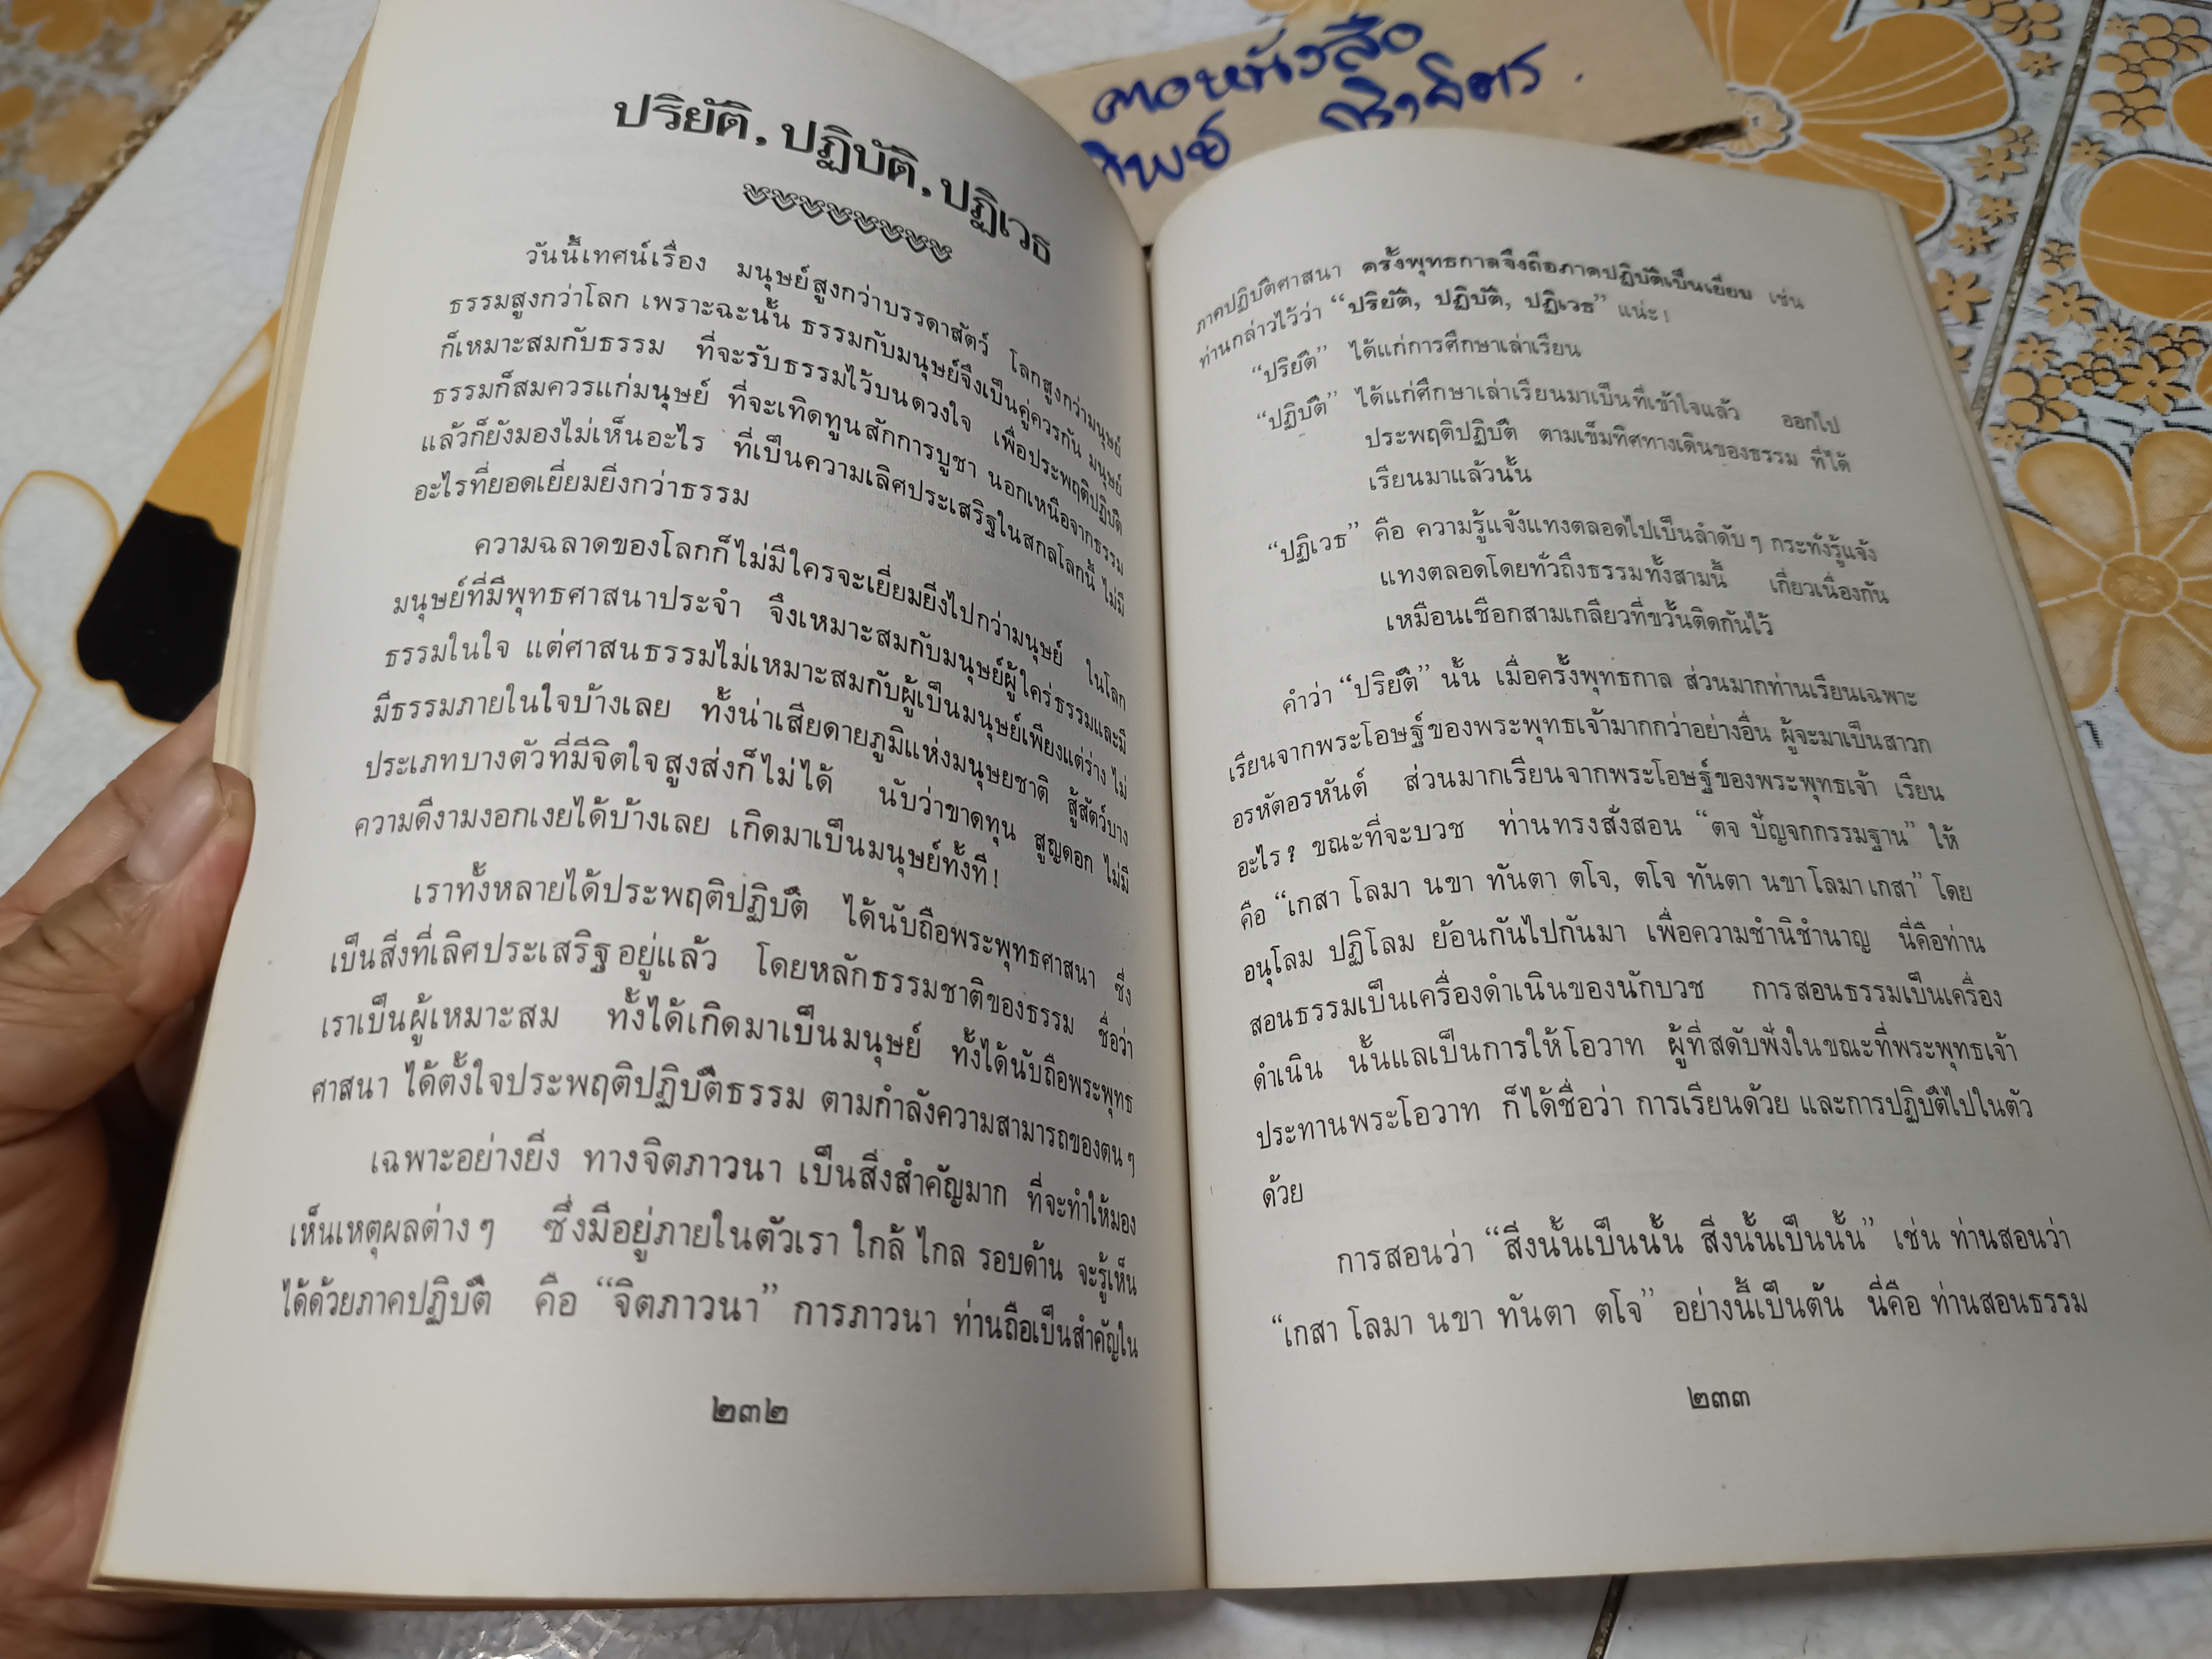 ปริยัติ, ปฏิบัติ, ปฏิเวธ
วันนี้เทศน์เรื่อง มนุษย์สูงกว่าบรรดาสัตว์ โลกสูงกว่ามนุษย์
ธรรมสูงกว่าโลก เพราะฉะนั้น ธรรมกับมนุษย์จึงเป็นคู่ควรกัน มนุษย์
ก็เหมาะสมกับธรรม ที่จะรับธรรมไว้บนดวงใจ เพื่อประพฤติปฏิบัติ
ธรรมก็สมควรแก่มนุษย์ ที่จะเทิดทูนสักการบูชา นอกเหนือจากธรรม
แล้วก็ยังมองไม่เห็นอะไร ที่เป็นความเลิศประเสริฐในสกลโลกนี้ ไม่มี
อะไรที่ยอดเยี่ยมยิ่งกว่าธรรม
ความฉลาดของโลกก็ไม่มีใครจะเยี่ยมยิ่งไปกว่ามนุษย์ ในโลก
มนุษย์ที่มีพุทธศาสนาประจำ จึงเหมาะสมกับมนุษย์ผู้ใคร่ธรรมและมี
ธรรมในใจ แต่ศาสนธรรมไม่เหมาะสมกับผู้เป็นมนุษย์เพียงแต่ร่าง ไม่
มีธรรมภายในใจบ้างเลย ทั้งน่าเสียดายภูมิแห่งมนุษยชาติ สู้สัตว์บาง
ประเภทบางตัวที่มีจิตใจสูงส่งก็ไม่ได้ นับว่าขาดทุน สูญดอก ไม่มี
ความดีงามงอกเงยได้บ้างเลย เกิดมาเป็นมนุษย์ทั้งที!
เราทั้งหลายได้ประพฤติปฏิบัติ ได้นับถือพระพุทธศาสนา ซึ่ง
เป็นสิ่งที่เลิศประเสริฐอยู่แล้ว โดยหลักธรรมชาติของธรรม ชื่อว่า
เราเป็นผู้เหมาะสม ทั้งได้เกิดมาเป็นมนุษย์ ทั้งได้นับถือพระพุทธ
ศาสนา ได้ตั้งใจประพฤติปฏิบัติธรรม ตามกำลังความสามารถของตนๆ
เฉพาะอย่างยิ่ง ทางจิตภาวนา เป็นสิ่งสำคัญมาก ที่จะทำให้มอง
เห็นเหตุผลต่างๆ ซึ่งมีอยู่ภายในตัวเรา ใกล้ ไกล รอบด้าน จะรู้เห็น
ได้ด้วยภาคปฏิบัติ คือ “จิตภาวนา” การภาวนา ท่านถือเป็นสำคัญใน
๒๓๒
ตอหนังสือ
ภาคปฏิบัติศาสนา ครั้งพุทธกาลจึงถือภาคปฏิบัติเป็นเยี่ยม เช่น
ท่านกล่าวไว้ว่า “ปริยัติ, ปฏิบัติ, ปฏิเวธ” แน่ะ!
“ปริยัติ” ได้แก่การศึกษาเล่าเรียน
“ปฏิบัติ” ได้แก่ศึกษาเล่าเรียนมาเป็นที่เข้าใจแล้ว ออกไป
ประพฤติปฏิบัติ ตามเข็มทิศทางเดินของธรรม ที่ได้
เรียนมาแล้วนั้น
“ปฏิเวธ” คือ ความรู้แจ้งแทงตลอดไปเป็นลำดับๆ กระทั่งรู้แจ้ง
แทงตลอดโดยทั่วถึงธรรมทั้งสามนี้ เกี่ยวเนื่องกัน
เหมือนเชือกสามเกลียวที่ขวั้นติดกันไว้
คำว่า “ปริยัติ” นั้น เมื่อครั้งพุทธกาล ส่วนมากท่านเรียนเฉพาะ
เรียนจากพระโอษฐ์ของพระพุทธเจ้ามากกว่าอย่างอื่น ผู้จะมาเป็นสาวก
อรหัตอรหันต์ ส่วนมากเรียนจากพระโอษฐ์ของพระพุทธเจ้า เรียน
อะไร? ขณะที่จะบวช ท่านทรงสั่งสอน “ตจ ปัญจกกรรมฐาน” ให้
คือ “เกสา โลมา นขา ทันตา ตโจ, ตโจ ทันตา นขา โลมา เกสา” โดย
อนุโลม ปฏิโลม ย้อนกันไปกันมา เพื่อความชำนิชำนาญ นี่คือท่าน
สอนธรรมเป็นเครื่องดำเนินของนักบวช การสอนธรรมเป็นเครื่อง
ดำเนิน นั้นแลเป็นการให้โอวาท ผู้ที่สดับฟังในขณะที่พระพุทธเจ้า
ประทานพระโอวาท ก็ได้ชื่อว่า การเรียนด้วย และการปฏิบัติไปในตัว
ด้วย
การสอนว่า “สิ่งนั้นเป็นนั้น สิ่งนั้นเป็นนั้น” เช่น ท่านสอนว่า
“เกสา โลมา นขา ทันตา ตโจ” อย่างนี้เป็นต้น นี่คือ ท่านสอนธรรม
๒๓๓